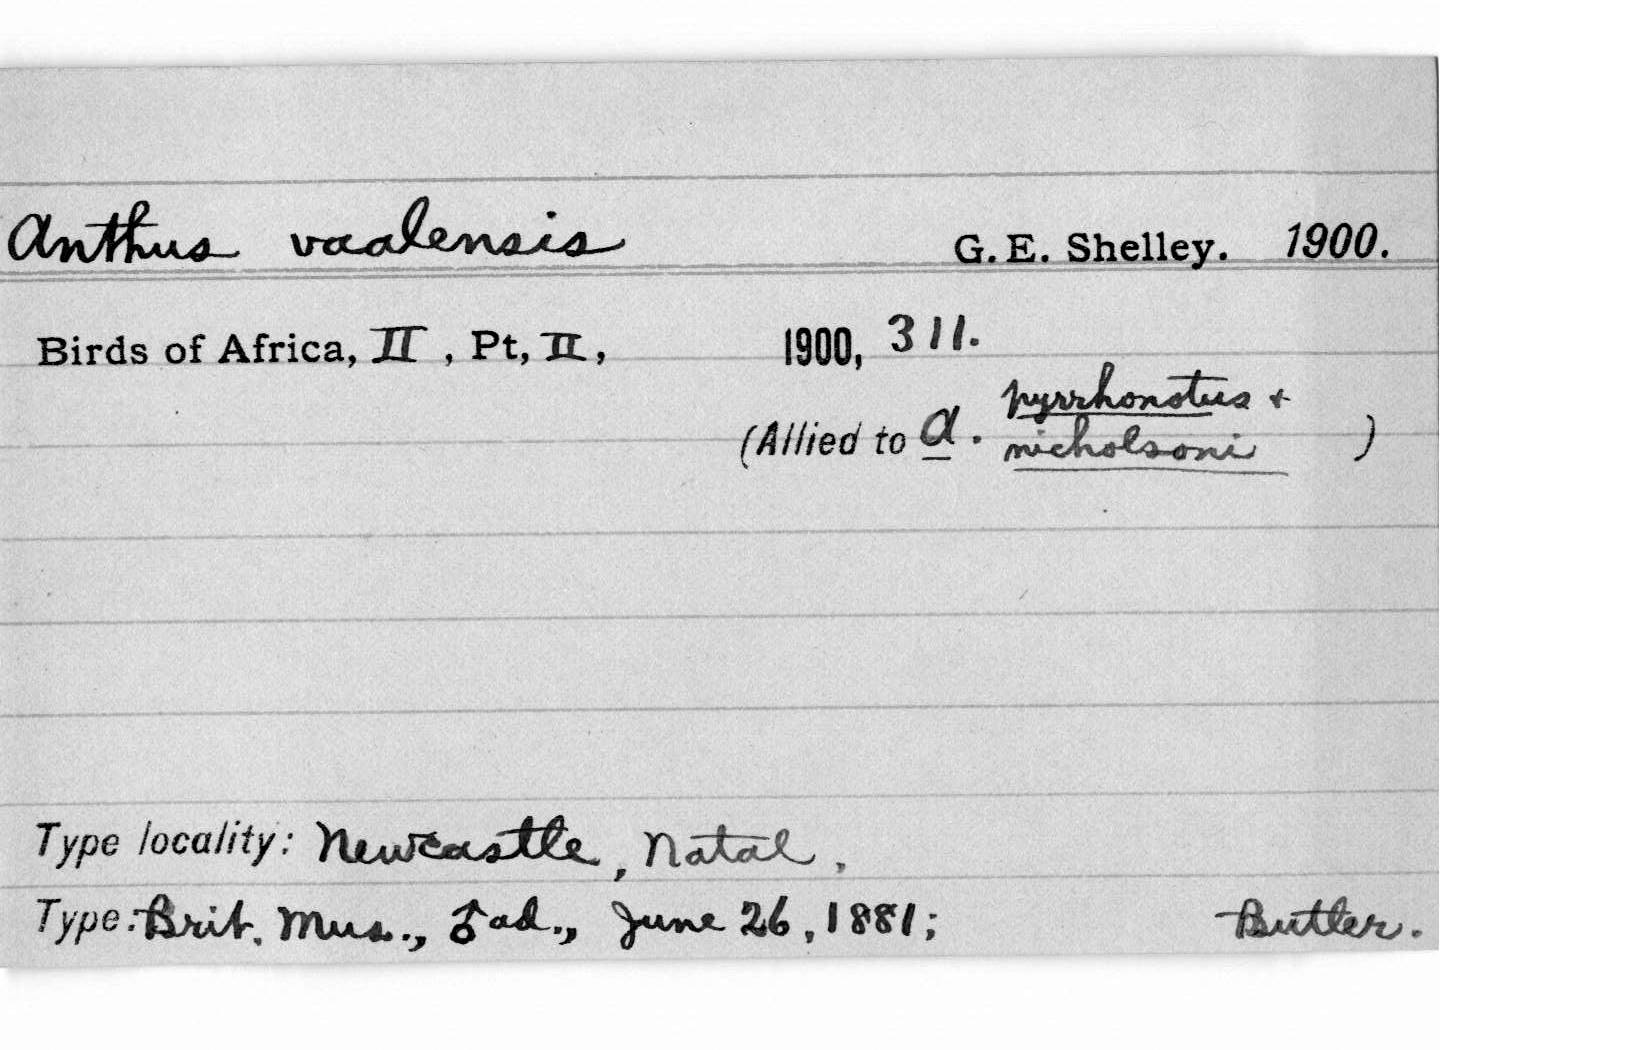 Anthus vaalensis G. E. Shelley. 1900.
Birds of Africa, II, Pt, II, 1900, 311.
(Allied to A. pyrrhonotus + nicholsoni )
Type locality: Newcastle, Natal.
Type: Brit. Mus., ♂ ad., June 26, 1881; Butler.